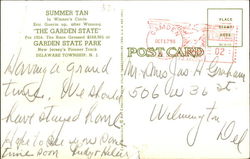 SUMMER TAN
In Winner's Circle
Eric Guerin up, after Winning
"THE GARDEN STATE"
For 1954. The Race Grossed
GARDEN STATE PARK
New Jersey's Pioneer Track
DELAWARE TOWNSHIP, N. J.
POST CARD
CAMDEN
.02
Having a Grand
time. We should
have stayed home
Hope to see you some
time soon
Mr & Mrs Jas H Graham
506 W 36 st.
Wilmington
Del